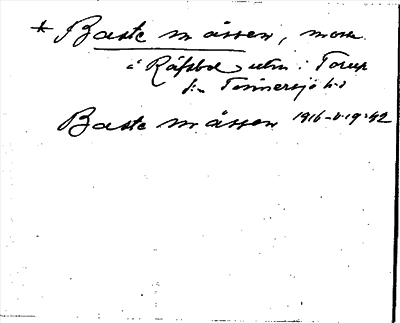 * Bastemåssen, mosse
å Råfsbol utm. i Torup
fr. Tönnersjö hd
Bastemåssen 1916-0-19:42